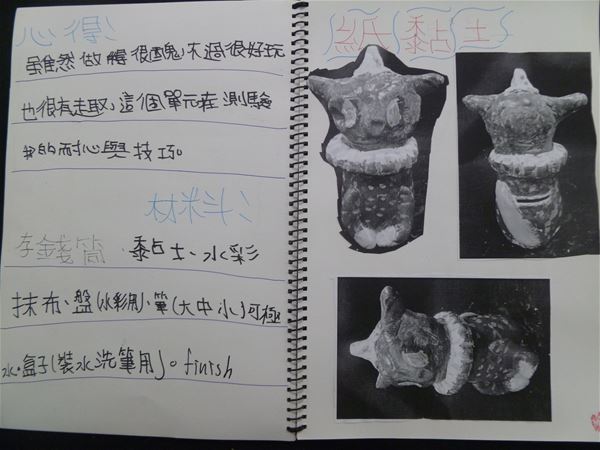 心得:
雖然做得很醜,不過很好玩
也很有趣,這個單元在測驗
我的耐心與技巧。
材料:
存錢筒、黏土、水彩
抹布、盤(水彩用)、筆(大中小)可極
水。盒子(裝水洗筆用)。finish
紙黏土